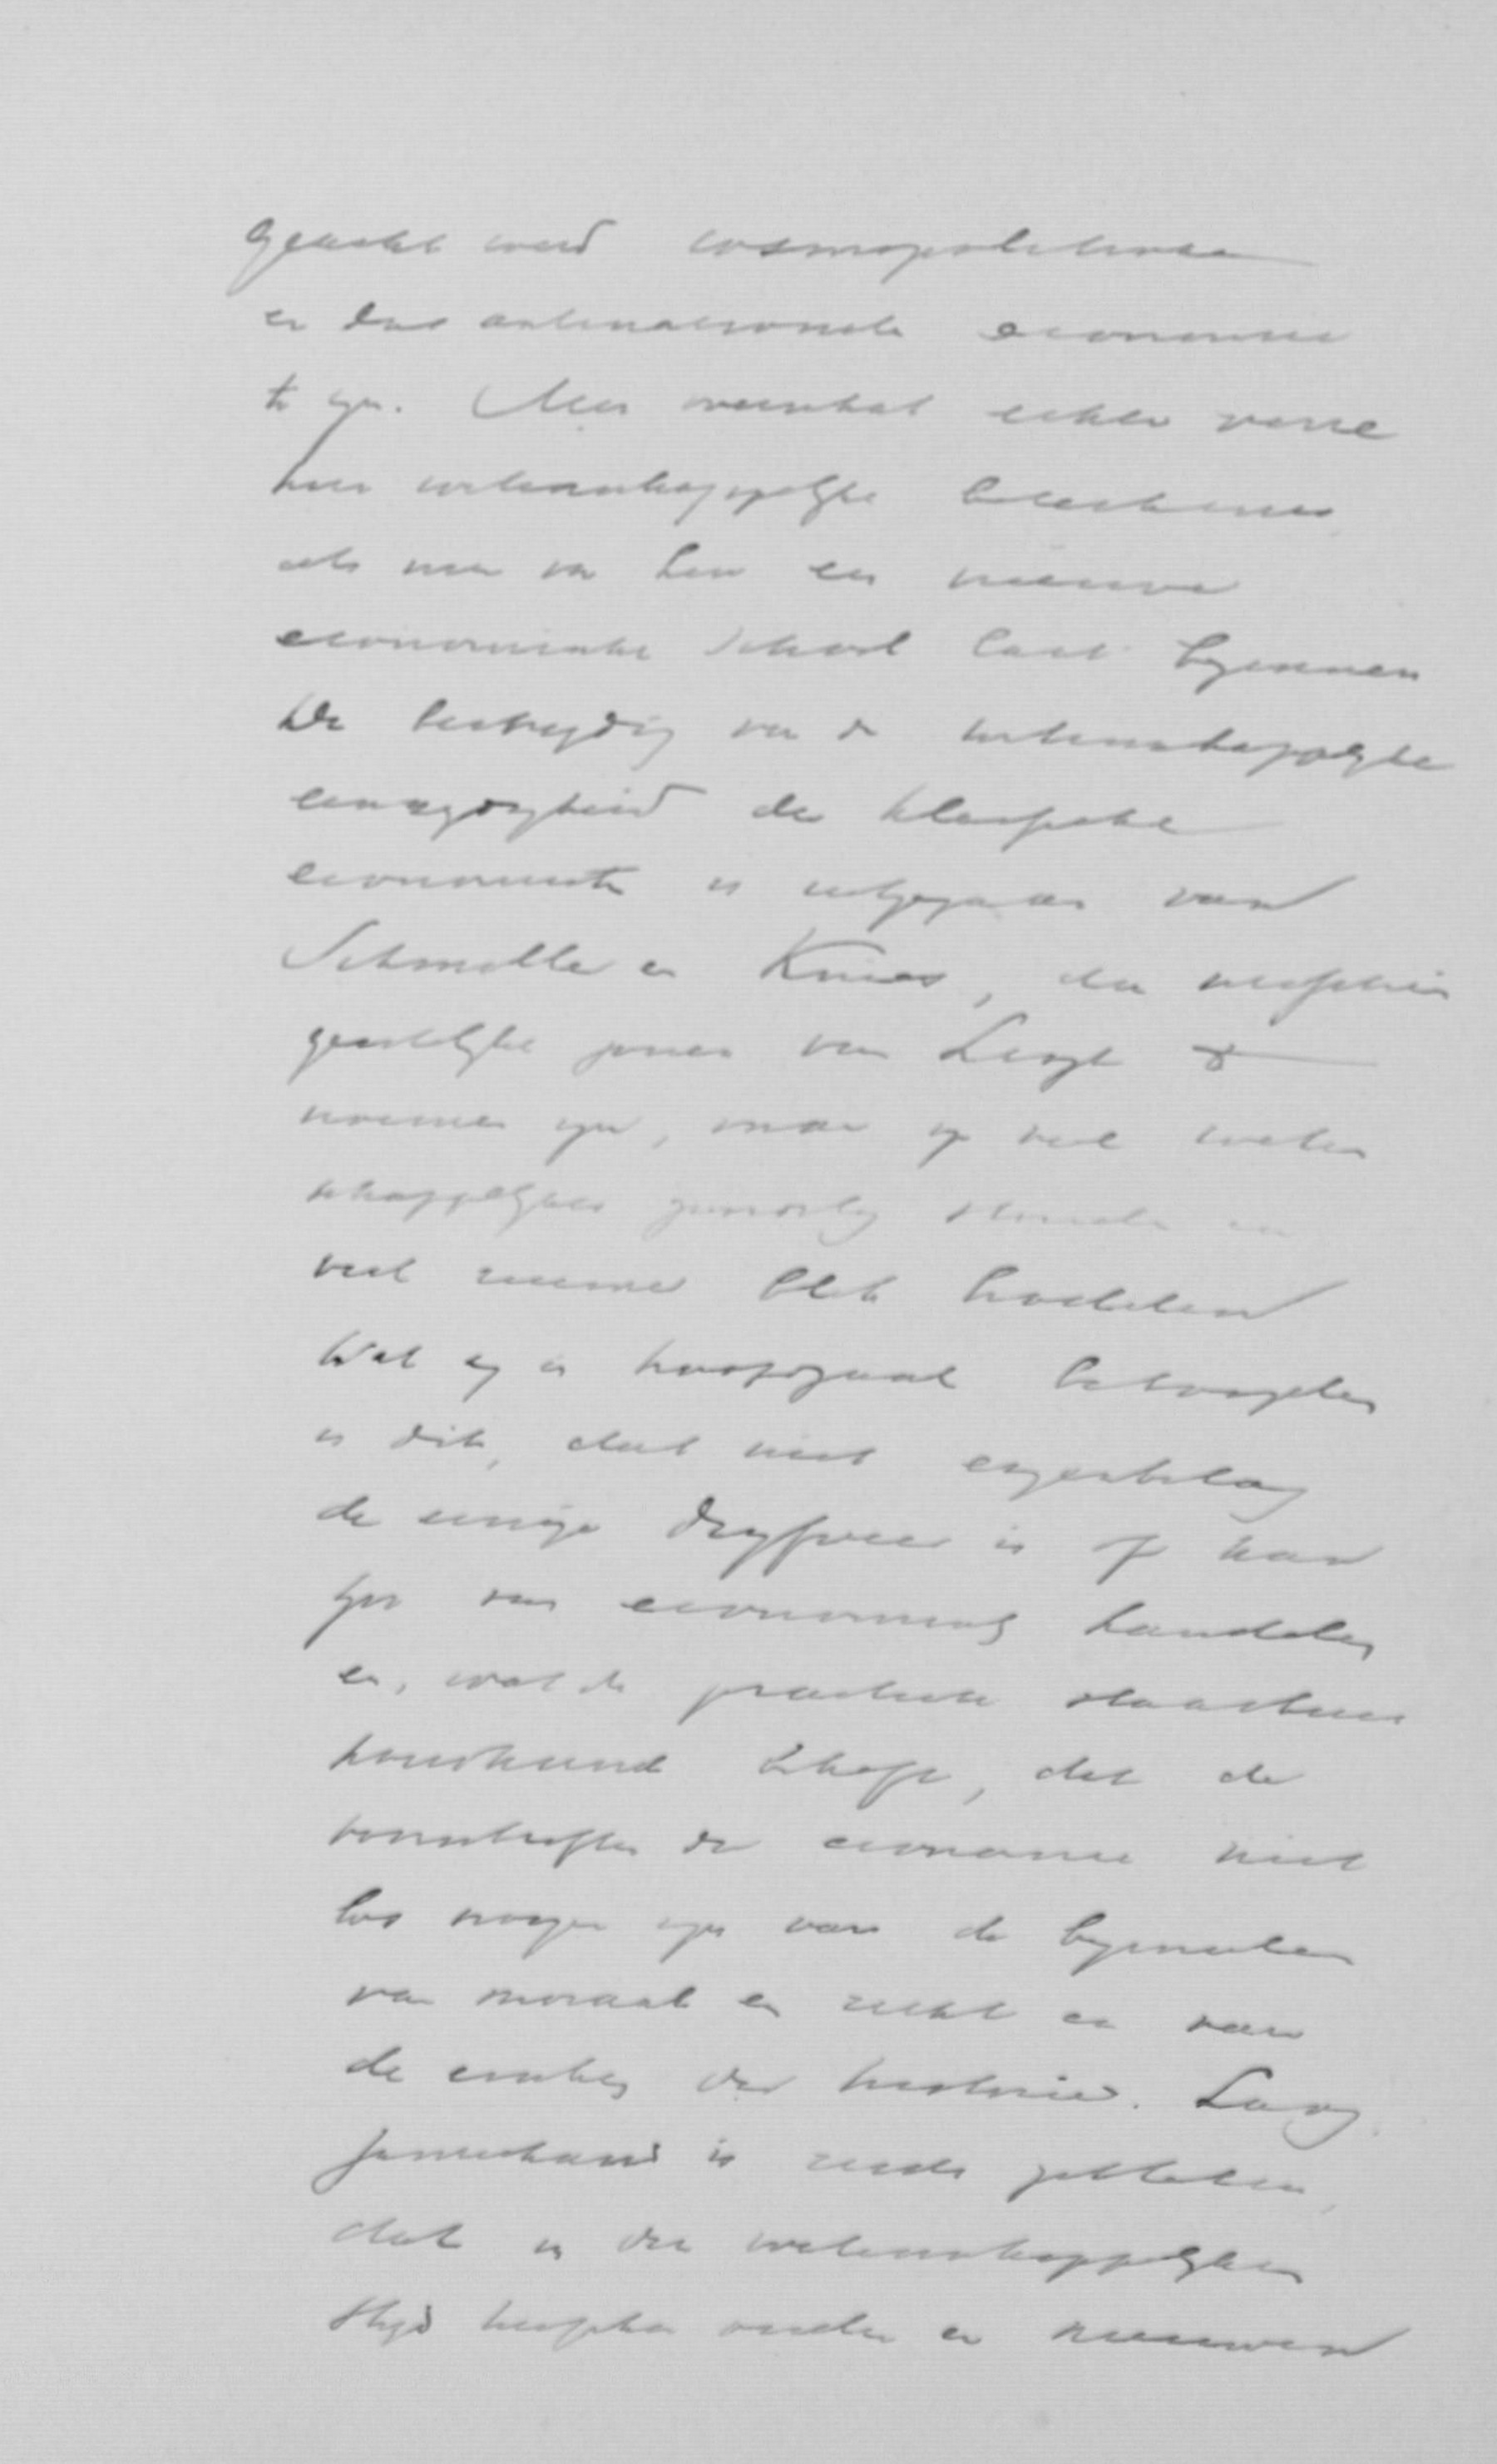 geacht werd cosmopolitische
en dus antinationale economie
te zijn. Men overschat echter verre
hun wetenschappelijke beteekenis
als men van hen een nieuwe
economische school laat beginnen
De bestrijding van de wetenschappelijke
eenzijdigheid der klassieke
economisten is uitgegaan van
Schmoller en Knies, die misschien
geestelijke zonen van List te
noemen zijn, maar op veel weten
schappelijker grondslag stonden en
veel ruimer blik hadden
Wat zij in hoofdzaak betoogden
is dit, dat niet eigenbelang
de eenige drijfveer is of kan
zijn van economisch handelen
en, wat de practische staathuis
houdkunde betreft, dat de
voorschriften der economie niet
los mogen zijn van de beginselen
van moraal en recht en van
de eischen der historie. Lang
zamerhand is reeds gebleken,
dat in den wetenschappelijken
strijd tusschen ouden en nieuwen